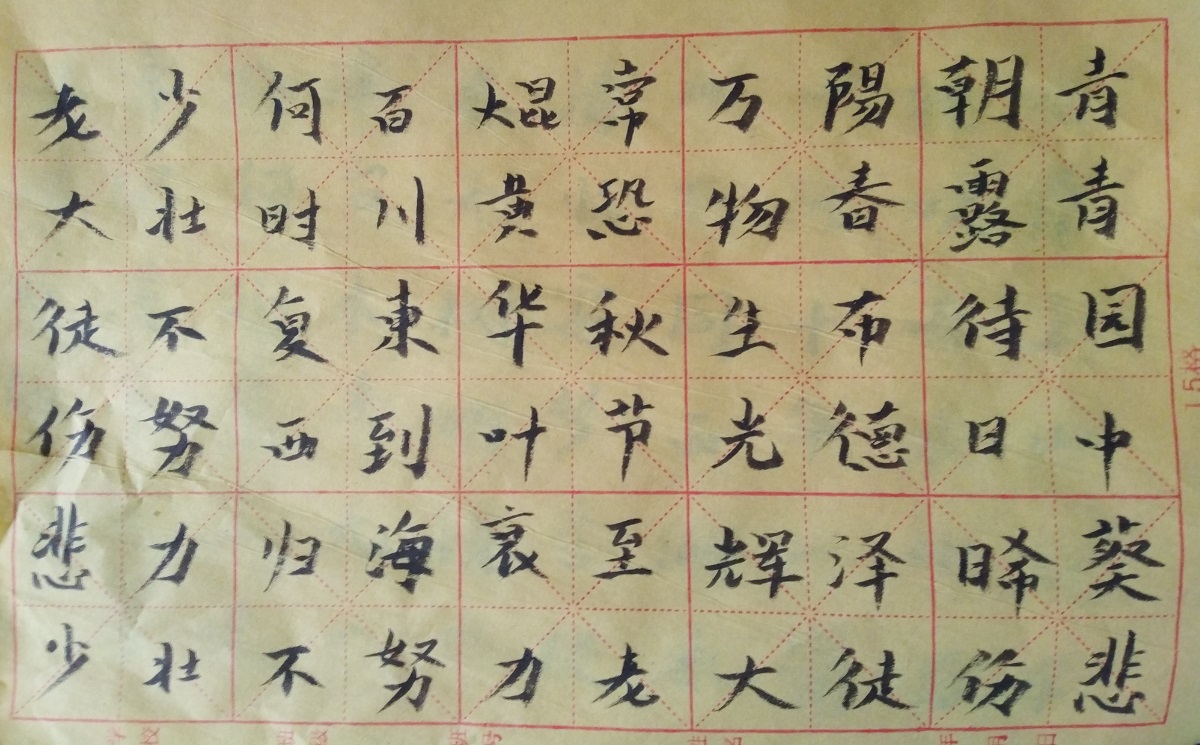 青青园中葵悲
朝露待日晞伤
陽春布德泽徒
万物生光辉大
常恐秋节至老
焜黄华叶衰力
百川東到海努
何时复西归不
少壮不努力壮
老大徒伤悲少
15格
年 月 日